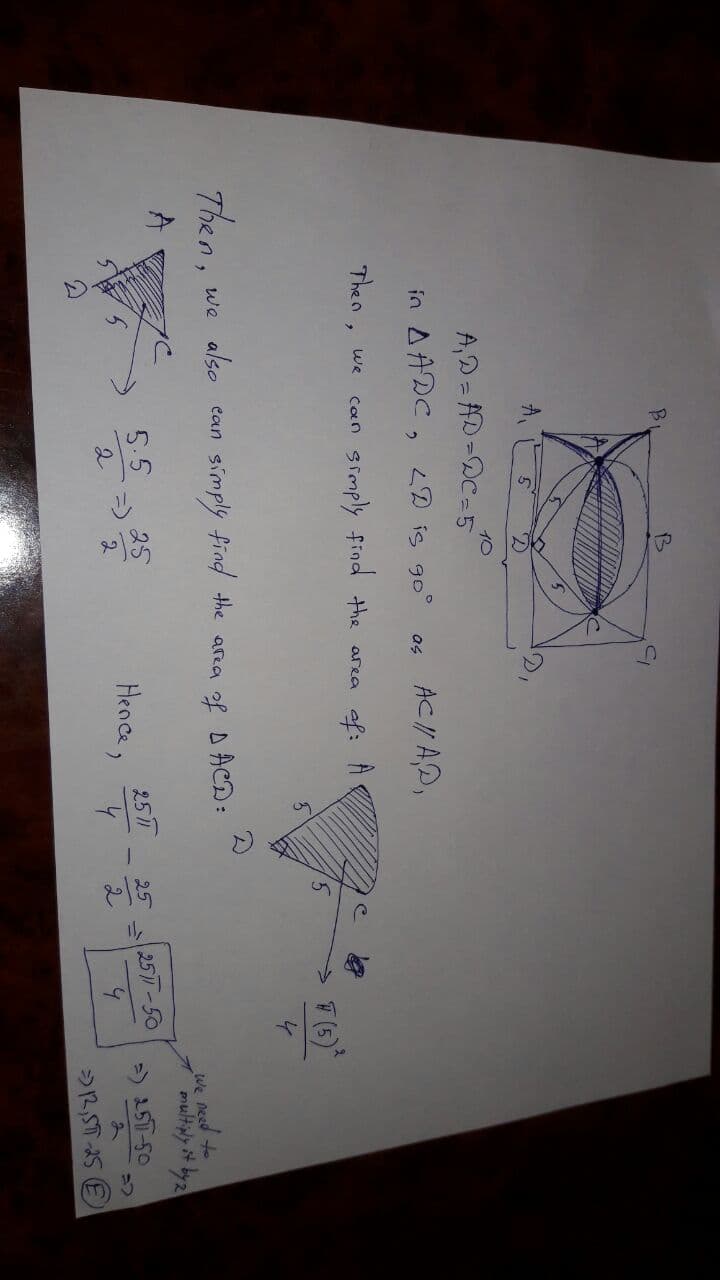 B₁ B C₁
A C
5 5
A₁ 5 D D₁
10
A₁D = AD = DC = 5
in △ADC, ∠D is 90° as AC // A₁D₁
Then, we can simply find the area of: A C
5 5 → π(5)²/4
D
Then, we also can simply find the area of △ACD:
A C
5 5 → 5·5/2 => 25/2
D
Hence, 25π/4 - 25/2 => 25π-50/4 => 25π-50/2 =>
we need to
multiply it by 2
=> 12,5π-25 (E)